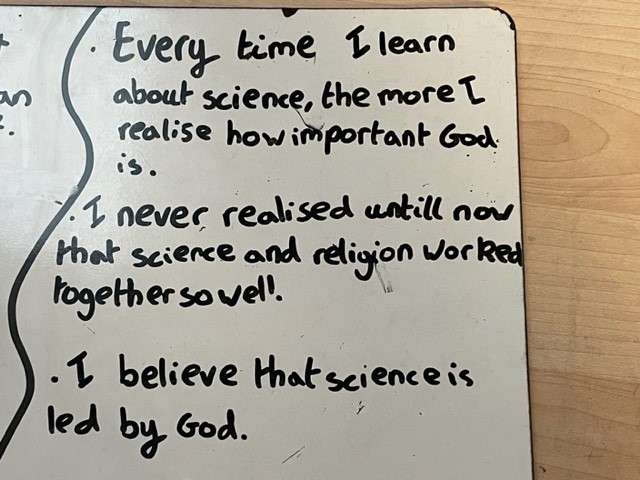 · Every time I learn
about science, the more I
realise how important God
is.
· I never realised untill now
that science and religion worked
together so well.
· I believe that science is
led by God.